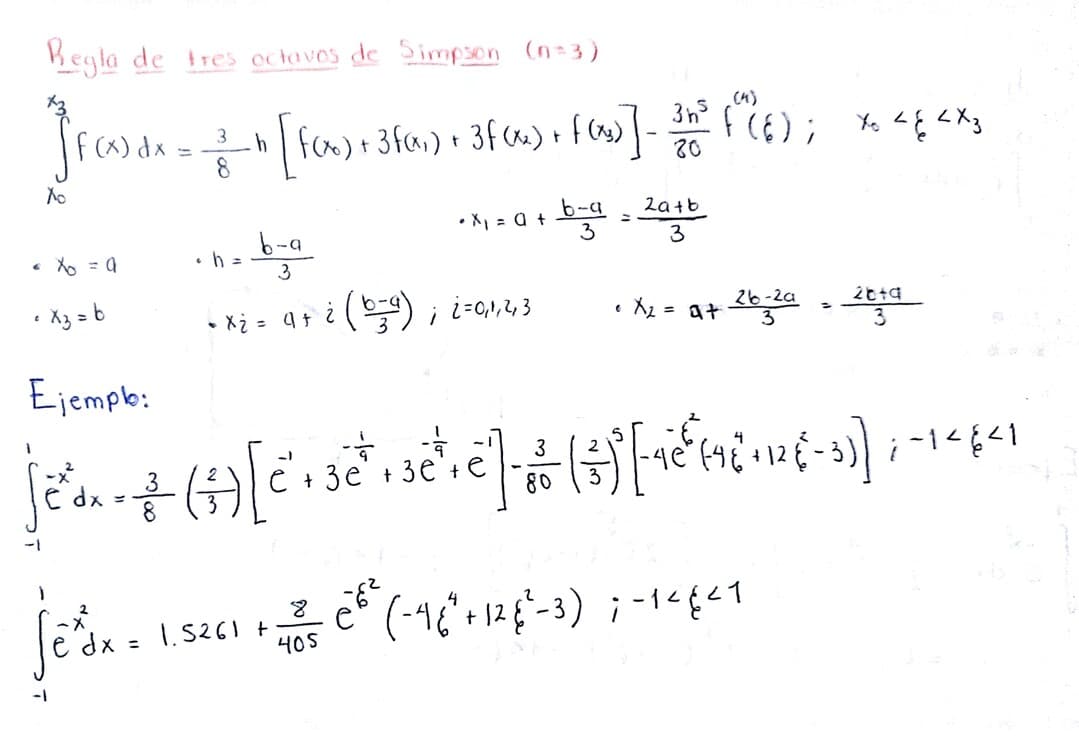 Regla de tres octavos de Simpson (n=3)
∫_{x₀}^{x₃} f(x) dx = 3/8 h [f(x₀) + 3f(x₁) + 3f(x₂) + f(x₃)] - 3h⁵/80 f⁽⁴⁾(ξ) ; x₀ < ξ < x₃
• x₀ = a • h = (b-a)/3 • x₁ = a + (b-a)/3 = (2a+b)/3
• x₃ = b • xᵢ = a + i ((b-a)/3) ; i=0,1,2,3 • x₂ = a + (2b-2a)/3 = (2b+a)/3
Ejemplo:
∫_{-1}^{1} e^{-x²} dx = 3/8 (2/3) [e^{-1} + 3e^{-1/9} + 3e^{-1/9} + e^{-1}] - 3/80 (2/3)⁵ [-4e^{-ξ²}(-4ξ⁴ + 12ξ² - 3)] ; -1 < ξ < 1
∫_{-1}^{1} e^{-x²} dx = 1.5261 + 8/405 e^{-ξ²} (-4ξ⁴ + 12ξ² - 3) ; -1 < ξ < 1